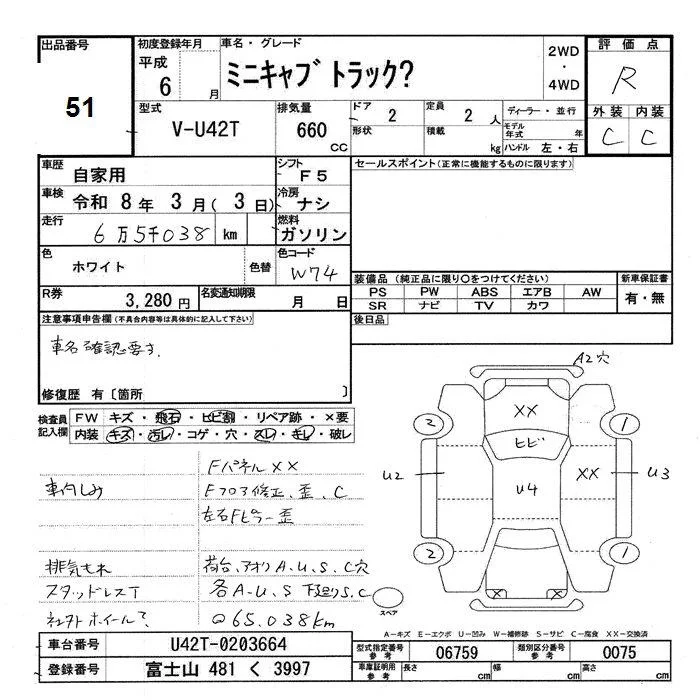 出品番号
51
初度登録年月
平成 6 月
車名・グレード
ミニキャブ トラック?
2WD・4WD
評価点
R
外装 内装
C C
型式
V-U42T
排気量
660 CC
ドア 2
形状
定員 2 人
積載 kg
ディーラー・並行
モデル年式 年
ハンドル 左・右
車歴
自家用
シフト
F5
車検
令和 8 年 3 月( 3 日)
冷房
ナシ
走行
6万5千038 km
燃料
ガソリン
色
ホワイト
色替
色コード
W74
R券
3,280 円
名変通知期限
月 日
セールスポイント(正常に機能するものに限ります)
装備品 (純正品に限り○をつけてください)
PS PW ABS エアB AW
SR ナビ TV カワ
新車保証書
有・無
後日品
注意事項申告欄(不具合内容等は具体的に記入して下さい)
車名確認要す.
修復歴 有〔箇所 〕
検査員記入欄
FW キズ・飛石・ヒビ割・リペア跡・×要
内装 キズ・汚レ・コゲ・穴・スレ・キレ・破レ
FパネルXX
車内しみ
Fフロア修正、歪、C
左右Fピラー歪
排気もれ
荷台、アオリA.U.S.C穴
スタッドレスT
各A.U.S 下廻りS.C
社外ホイール?
@65.038km
A2穴
XX
ヒビ
U4
XX
U2
U3
2
1
2
1
X
X
スペア
A−キズ E−エクボ U−凹み W−補修跡 S−サビ C−腐食 XX−交換済
車台番号
U42T-0203664
登録番号
富士山 481 く 3997
型式指定番号
参考
06759
類別区分番号
参考
0075
車庫証明用
参考
長さ cm
幅 cm
高さ cm